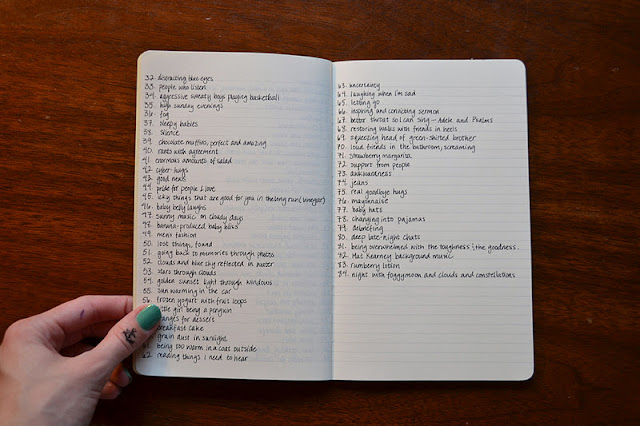 32. distracting blue eyes
33. people who listen
34. aggressive sweaty boys playing basketball
35. high sunday evenings
36. fog
37. sleepy babies
38. silence
39. chocolate muffins, perfect and amazing
40. rants with agreement
41. enormous amounts of salad
42. cyber hugs
43. good news
44. pride for people I love
45. icky things that are good for you in the long run (vinegar)
46. baby belly laughs
47. sunny music on cloudy days
48. banana-produced baby kisses
49. mens fashion
50. lost things, found
51. going back to memories through photos
52. clouds and blue sky reflected in water
53. stars through clouds
54. golden sunset light through windows
55. sun warming in the car
56. frozen yogurt with fruit loops
little girl being a penguin
oranges for dessert
breakfast cake
grain dust in sunlight
being too warm in a coat outside
62. reading things I need to hear
63. uncertainty
64. laughing when I'm sad
65. letting go
66. inspiring and convicting sermon
67. better throat so I can sing - Adele and Psalms
68. restoring walks with friends in heels
69. squeezing head of green-shirted brother
70. loud friends in the bathroom, screaming
71. strawberry margarita
72. support from people
73. awkwardness
74. jeans
75. real goodbye hugs
76. mayonaise
77. baby hats
78. changing into pajamas
79. debriefing
80. deep late-night chats
81. being overwhelmed with the toughness & the goodness.
82. Mat Kearney background music
83. rumberry lotion
84. night with foggymoon and clouds and constellations